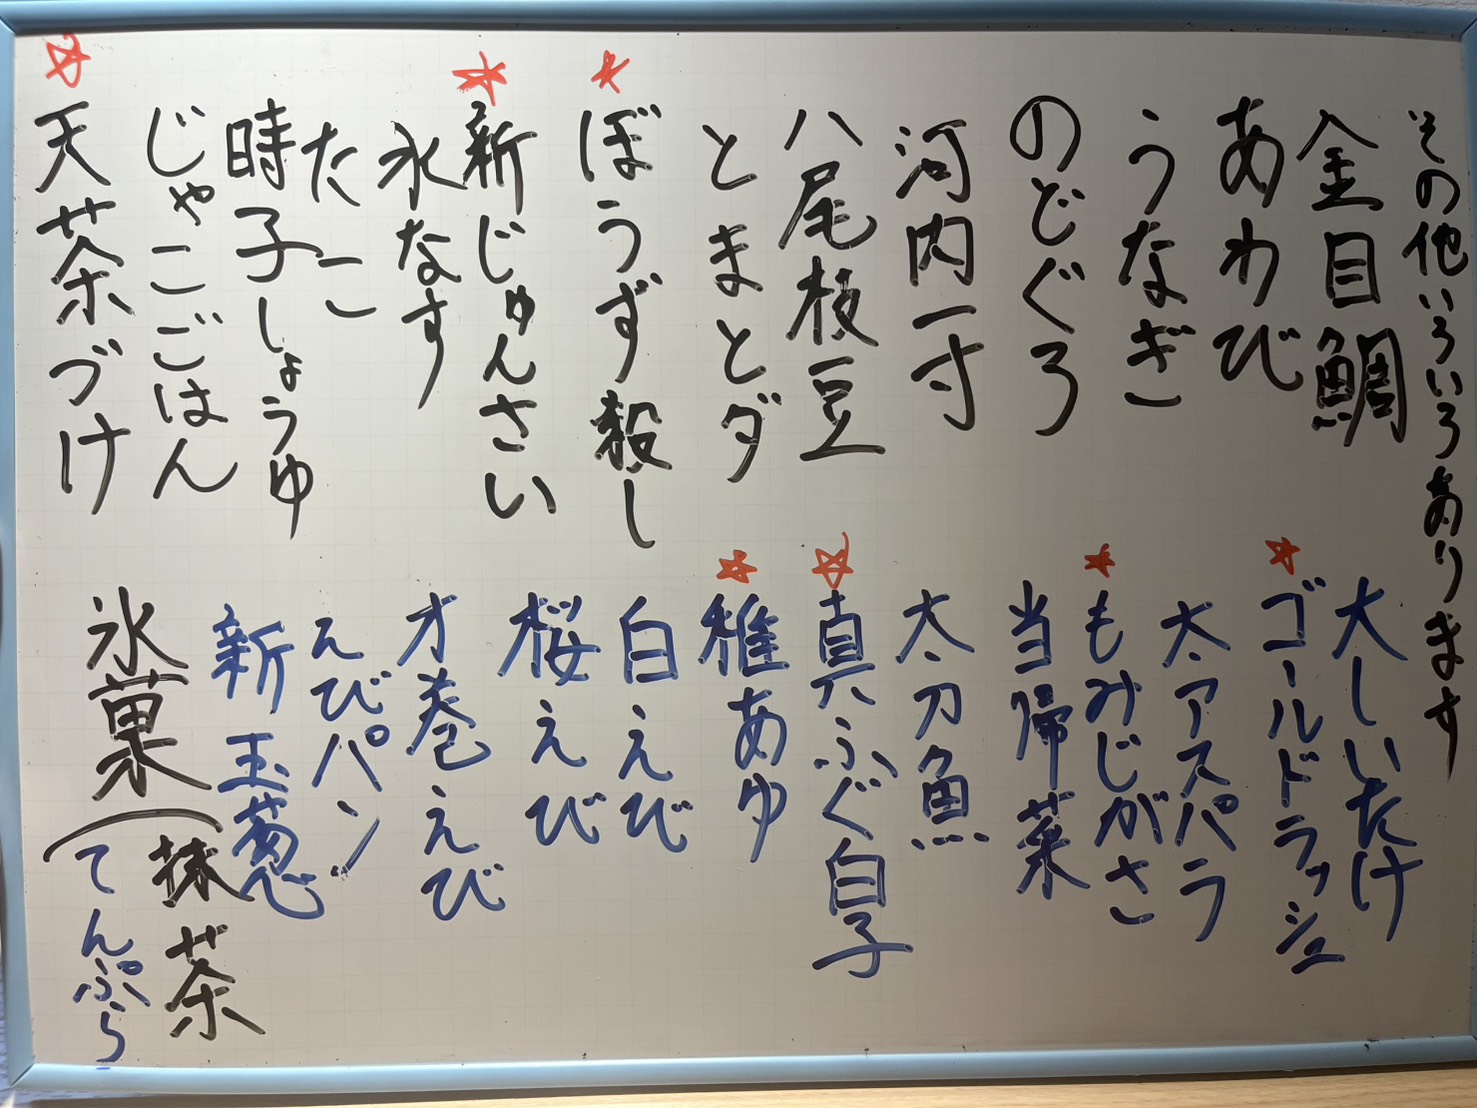 その他いろいろあります
金目鯛
あわび
うなぎ
のどぐろ
河内一寸
八尾枝豆
とまとダ
ぼうず殺し
新じゅんさい
水なす
たこ
時子しょうゆ
じゃこごはん
天茶づけ
大しいたけ
ゴールドラッシュ
太アスパラ
もみじがさ
当帰菜
太刀魚
真ふぐ白子
稚あゆ
白えび
桜えび
才巻えび
えびパン
新玉葱
氷菓(抹茶
てんぷら